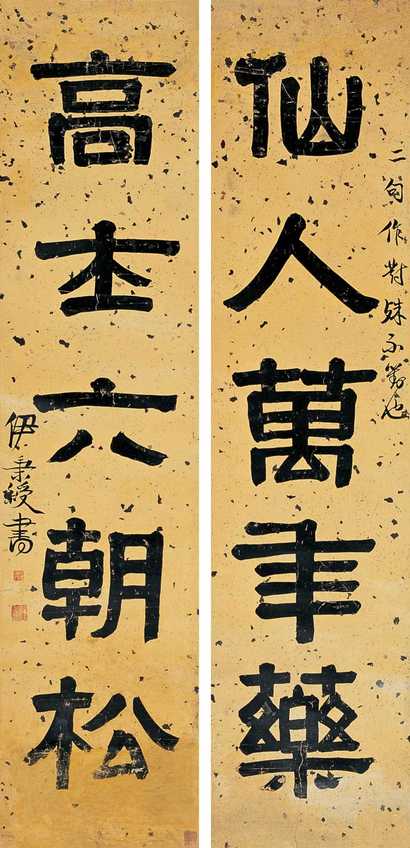 仙人萬年藥
二句作對殊不也
高士六朝松
伊秉綬書